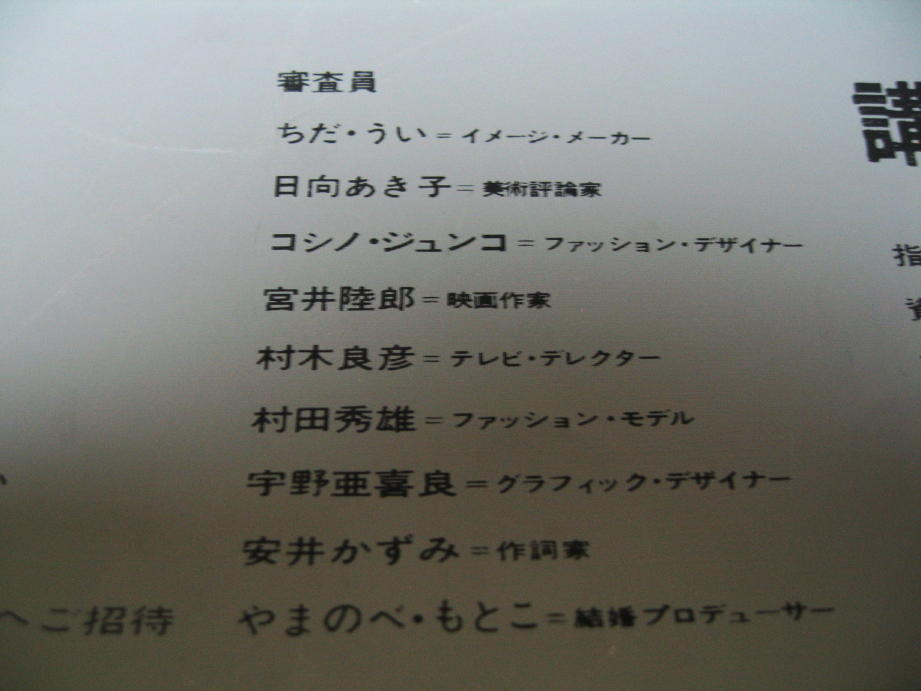 審査員
ちだ・うい＝イメージ・メーカー
日向あき子＝美術評論家
コシノ・ジュンコ＝ファッション・デザイナー
宮井陸郎＝映画作家
村木良彦＝テレビ・デレクター
村田秀雄＝ファッション・モデル
宇野亜喜良＝グラフィック・デザイナー
安井かずみ＝作詞家
へご招待
やまのべ・もとこ＝結婚プロデューサー
指